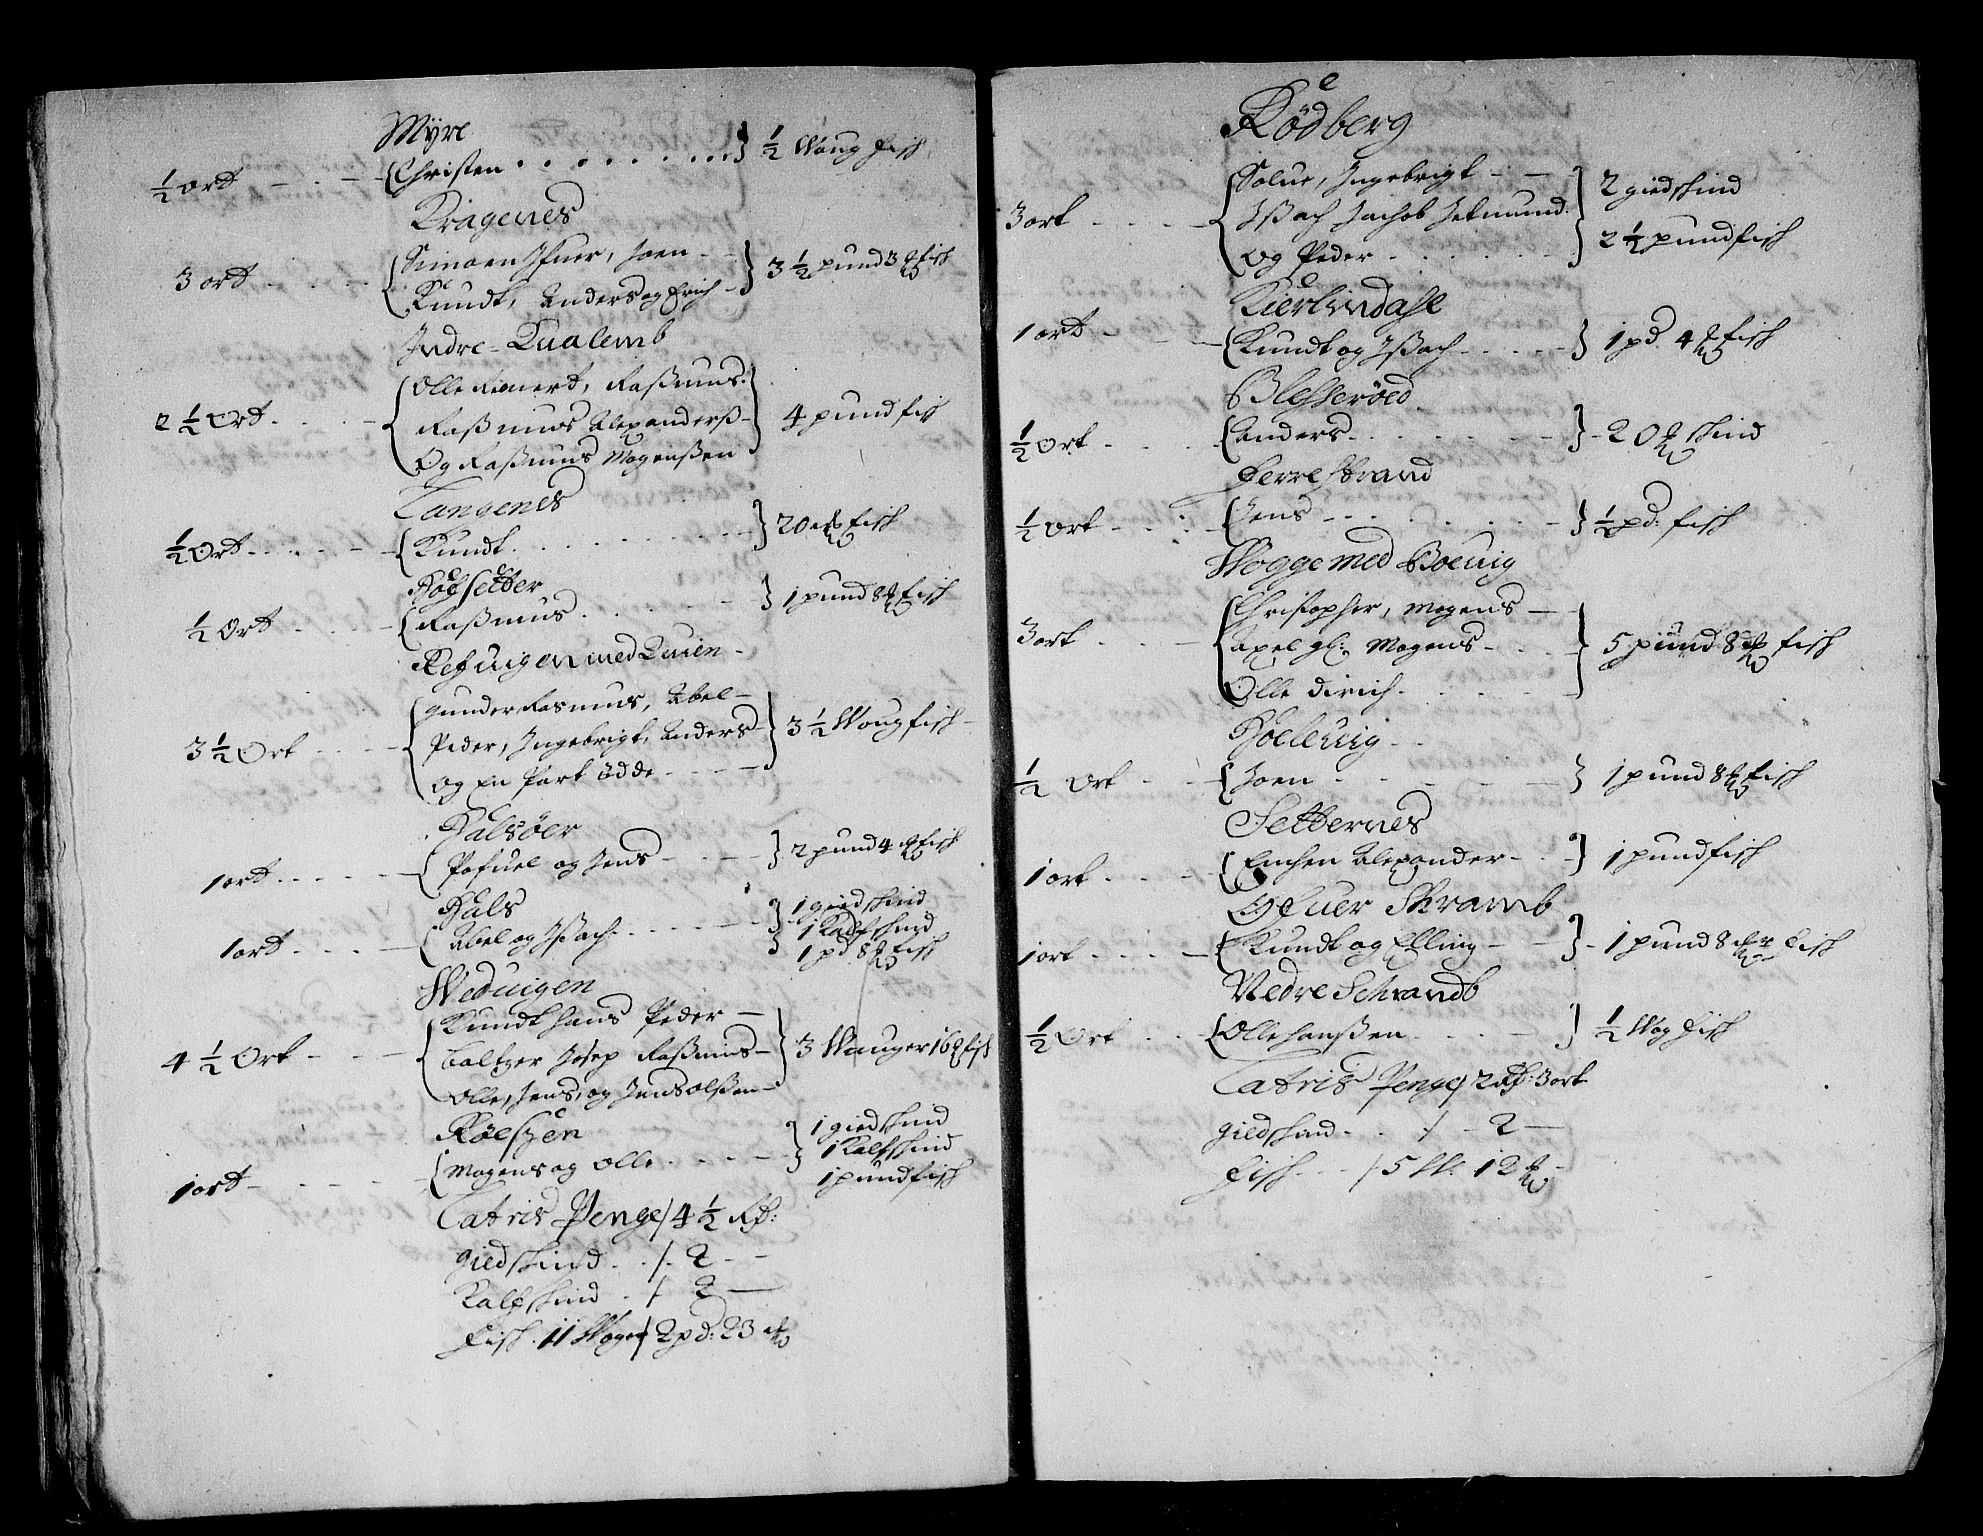 Myre
½ ort - - - {Christen . . . . . . . .} ½ Woug fisk
Kragenes
3 ort . . . . {Simoen Ifuer, Joen - -
Knudt, Anders og Erich -} 3 ½ pund 3 ℔ fisk
Indre-Qualemb
2 ½ Ort . . . . {Olle Reinert, Rasmus.
Rasmus Alexanderß-
Og Rasmus Mogenßen} 4 pund fisk
Tangenes
½ Ort . . . . {Knudt . . . . . . .} 20 ℔ fisk
Röchsetter
½ Ort . . . . {Raßmus . . . . .} 1 pund 8 ℔ fisk
Refuigen med Quien -
3 ½ Ort . . . . {gunder Rasmus, Abel-
Peder, Ingebrigt, Anders-
og En Part Ödde . . . .} 3 ½ Woug fisk -
Halsöer
1 ort . . . . {Pofuel og Jens - - -} 2 pund 4 ℔ fisk
Hals
1 ort . . . . {Abel og Ißach . . . . .} 1 giedskind
1 Kalfskind
1 pd 8 ℔ fisk
Weduigen
4 ½ Ort - - - {Knudt hans Peder -
Baltzer Josep Raßmus-
Olle, Jens, og Jens olßen-} 3 Wauger 16 ℔ fisk
Röeszen
1 ort - . . . {Mogens og Olle . . . .} 1 giedskind
1 Kalfskind
1 pund fisk
Latris Penge / 4 ½ Rd:
giedskind . . /. 2 - -
Kalfskind . / 2 -
Fisk. 11 Woger / 2 pd: 23 ℔
Rödberg
3 ort . . . . {Solue, Ingebrigt - -
Ißach Jachob Jetmund.
Og Peder . . . . . .} 2 giedskind
2 ½ pund fisk
Kierlindahl
1 ort - . . . {Knudt og Ißach . . . .} 1 pd. 4 ℔ fisk
Blesseröed
½ Ort . . . . {Anders . . . . . .} - 20 ℔ skind
Ferrestrand
½ ort . . . . {Jens - - . . . . .} ½ pd: fisk
Wogge med Boeuig
3 ort . . . . {Christopher, Mogens -
Axel gl: Mogens - - .
Olle Dirich . . . . .} 5 pund 8 ℔ fisk
Hoeleuig - .
½ Ort . . . {Joen . . . . . .} 1 pund 8 ℔ fisk
Setternes
1 ort . . . . {Enchen Alexander - . -} 1 pund fisk
Ofuer Skramb
1 ort . . . . {Knudt og Elling - -} - 1 pund 8 ℔ fisk
Nedre Schramb
½ Ort . . . {Olle hanßen . . . . .} ½ Wog fisk
Latris Penge / 2 Rd: 3 ort
giedskind . . / - 2 -
Fisk . . / 5 W. 12 ℔ -